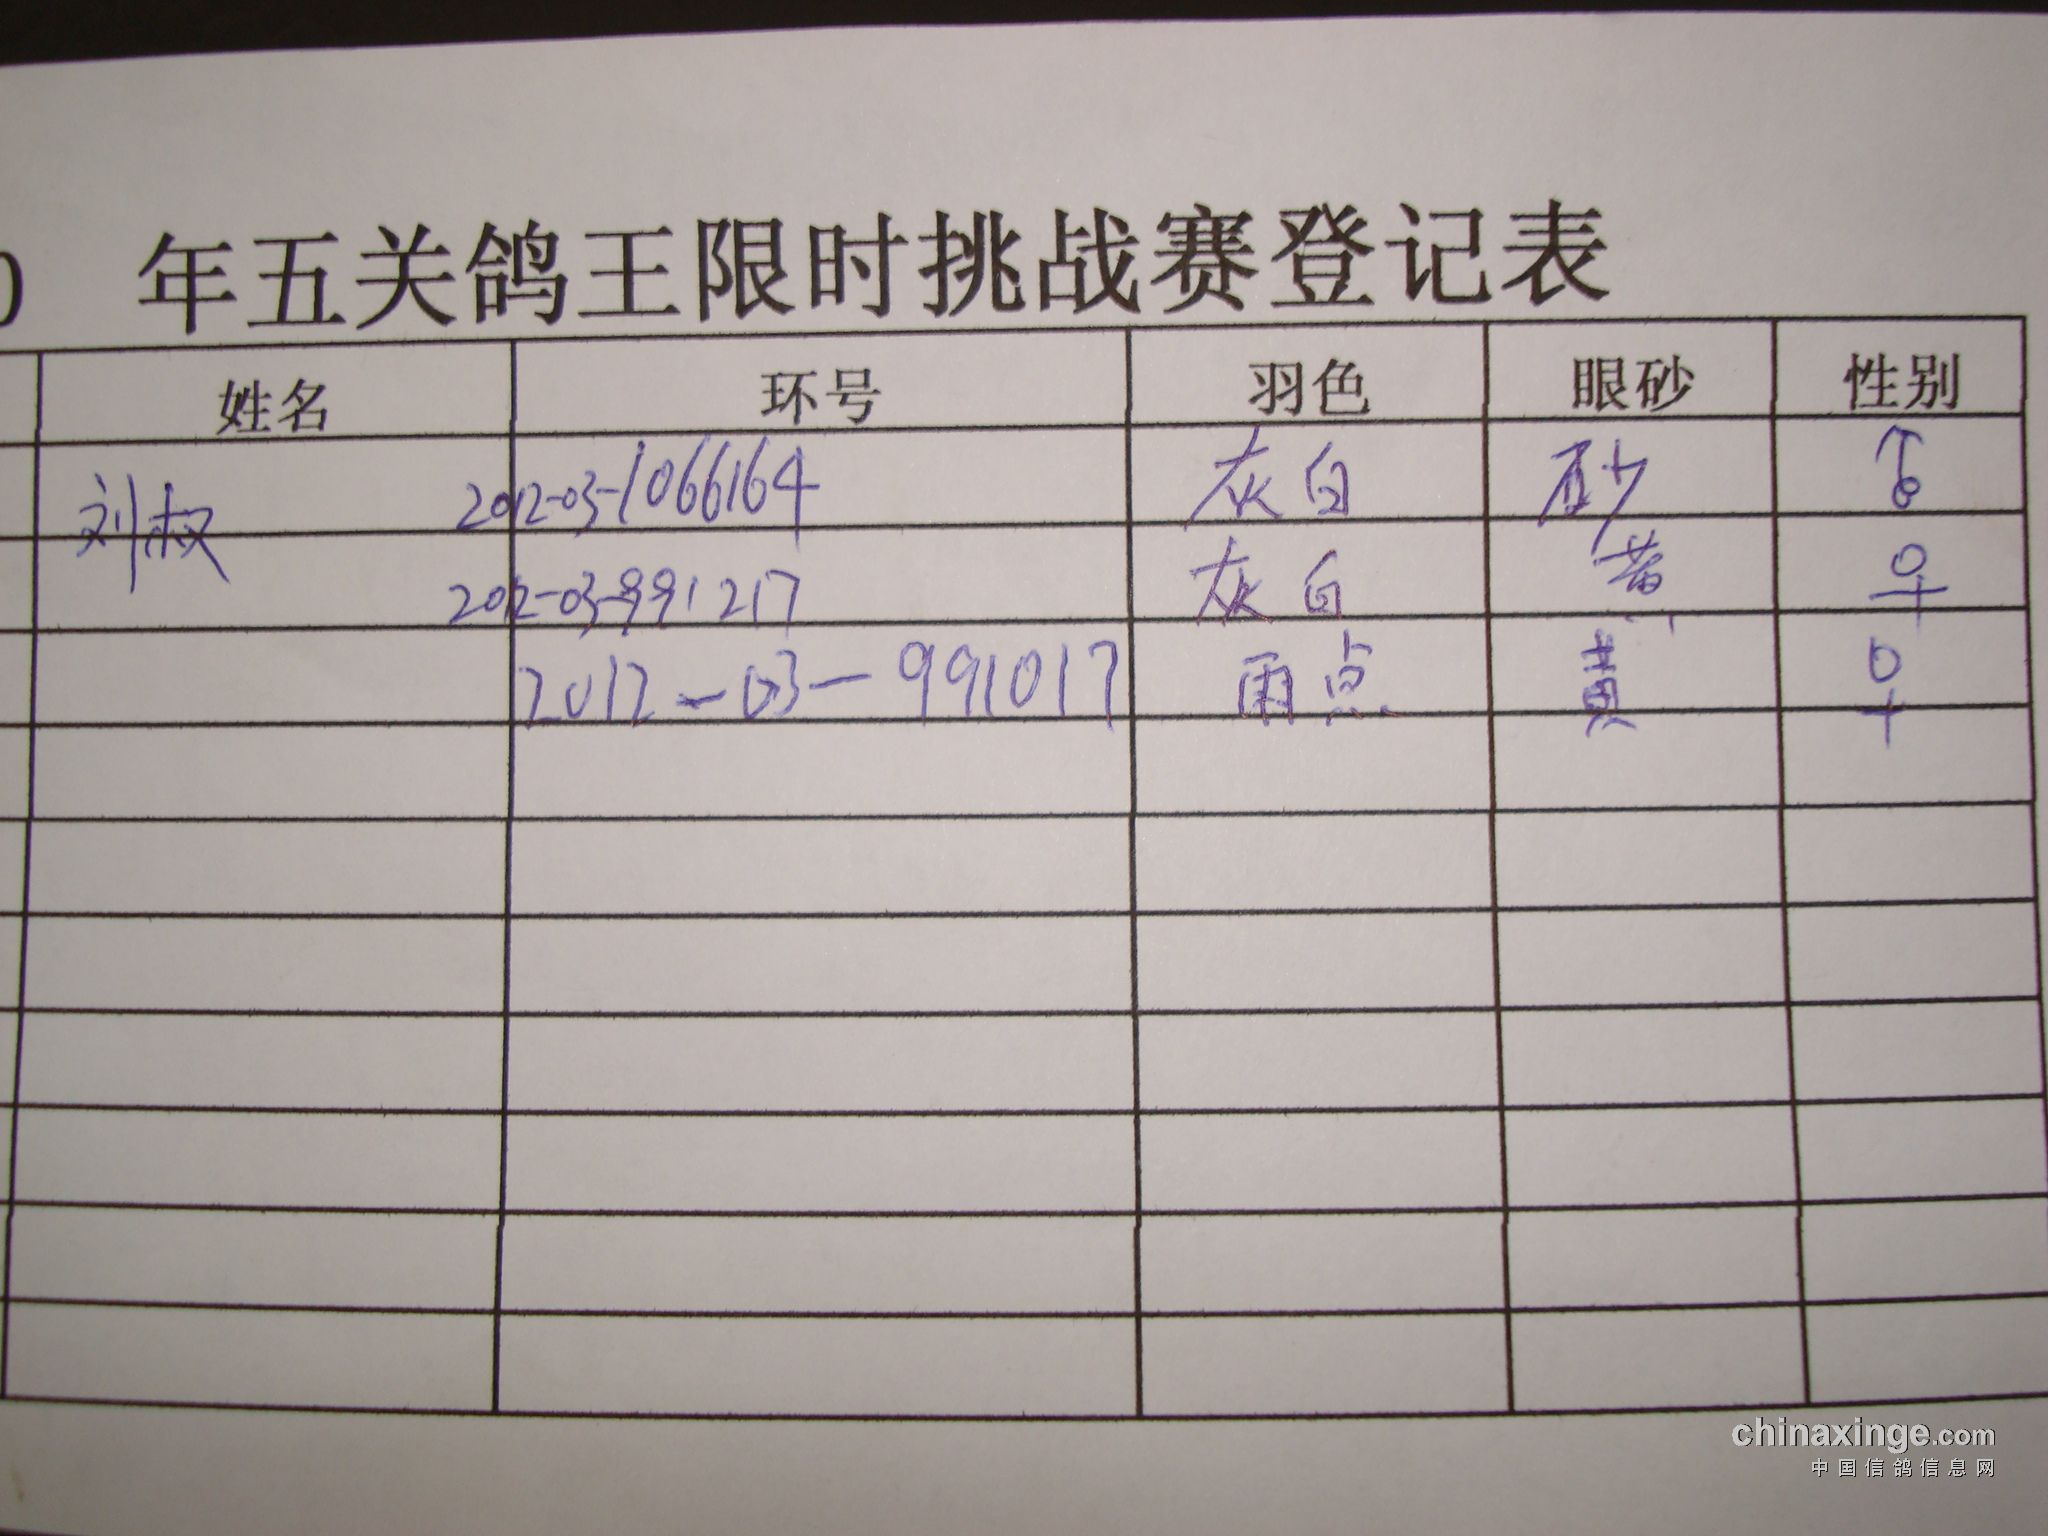 0 年五关鸽王限时挑战赛登记表
姓名 环号 羽色 眼砂 性别
刘叔 2012-03-1066164 灰白 砂 ♂
2012-03-991217 灰白 黄 ♀
2012-03-991017 雨点 黄 ♀
chinaxinge.com
中国信鸽信息网